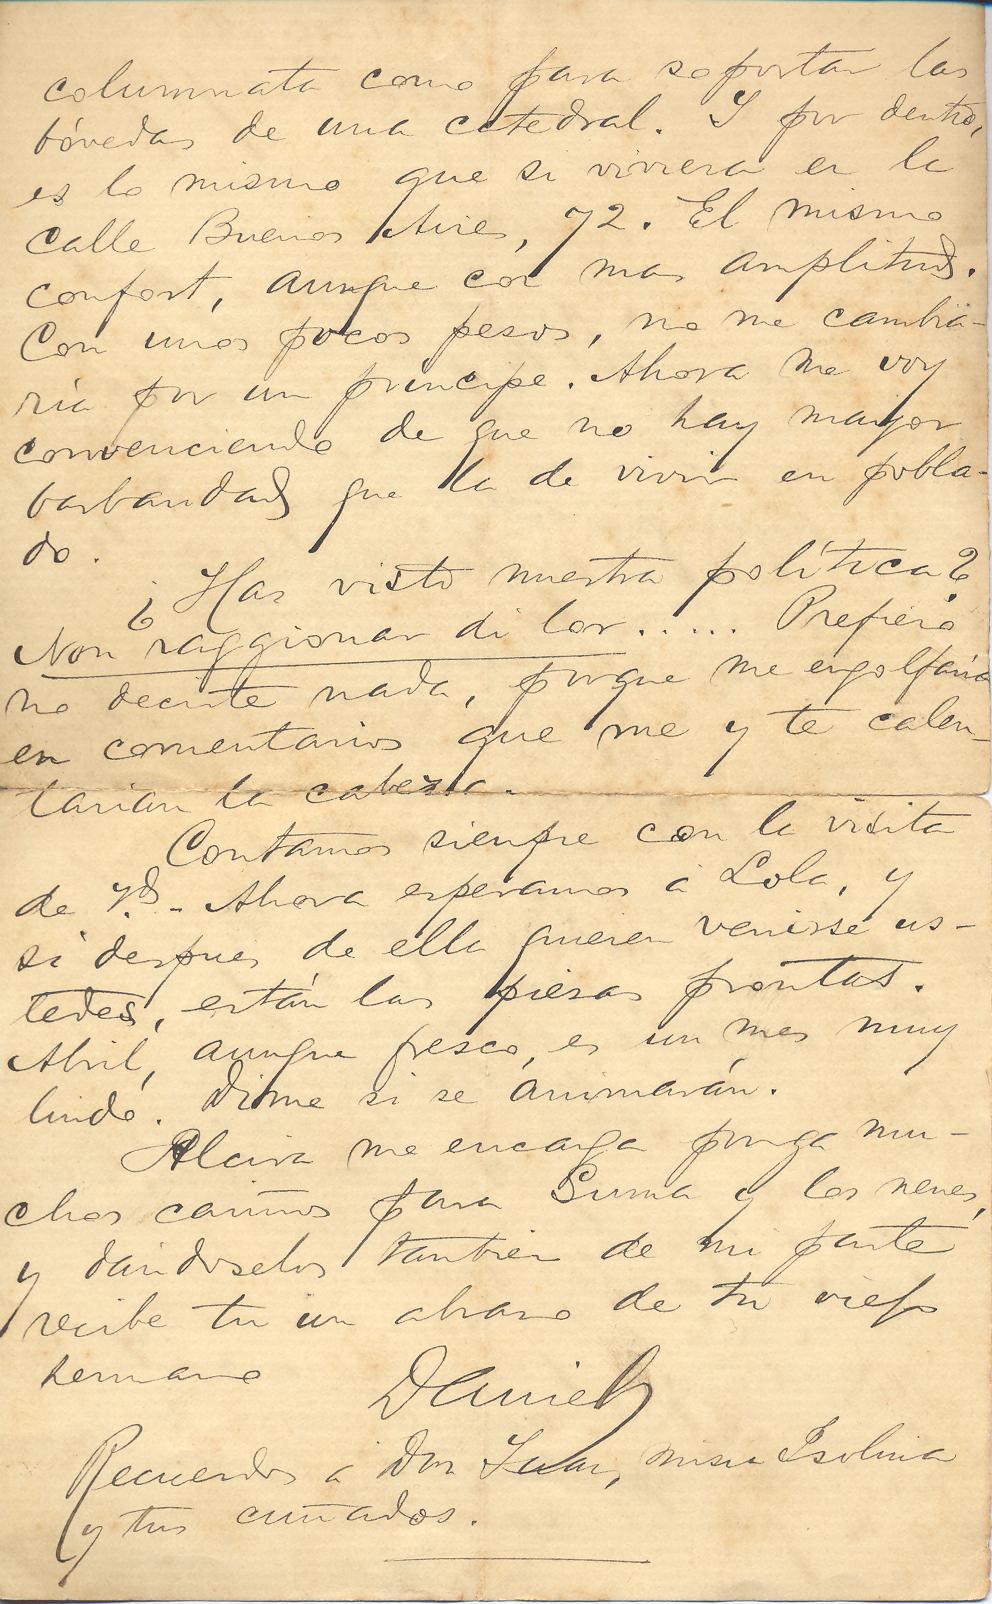 columnata como para soportar las
bóvedas de una catedral. Y por dentro,
es lo mismo que si viviera en la
calle Buenos Aires, 72. El mismo
confort, aunque con mas amplitud.
Con unos pocos pesos, no me cambia-
ría por un príncipe. Ahora me voy
convenciendo de que no hay mayor
barbaridad que la de vivir en pobla-
do.
¿Has visto nuestra política?
Non raggionar di lor..... Prefiero
no decirte nada, porque me engolfaría
en comentarios que me y te calen-
tarían la cabeza.
Contamos siempre con la visita
de Vds. - Ahora esperamos á Lola, y
si despues de ella quieren venirse us-
tedes, están las piezas prontas.
Abril, aunque fresco, es un mes muy
lindo. Dime si se animarán.
Alcira me encarga ponga mu-
chos cariños para Guma y los nenes,
y dándoselos tambien de mi parte
recibe tu un abrazo de tu viejo
hermano Daniel
Recuerdos á Don Juan, misia Isolina
y tus cuñados.